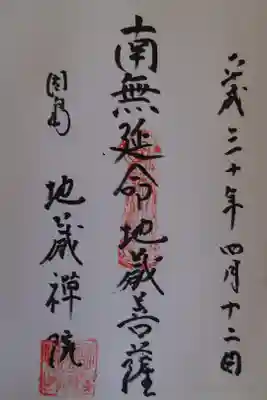 平成三十年四月十二日
南無延命地蔵菩薩
因島 地蔵禅院